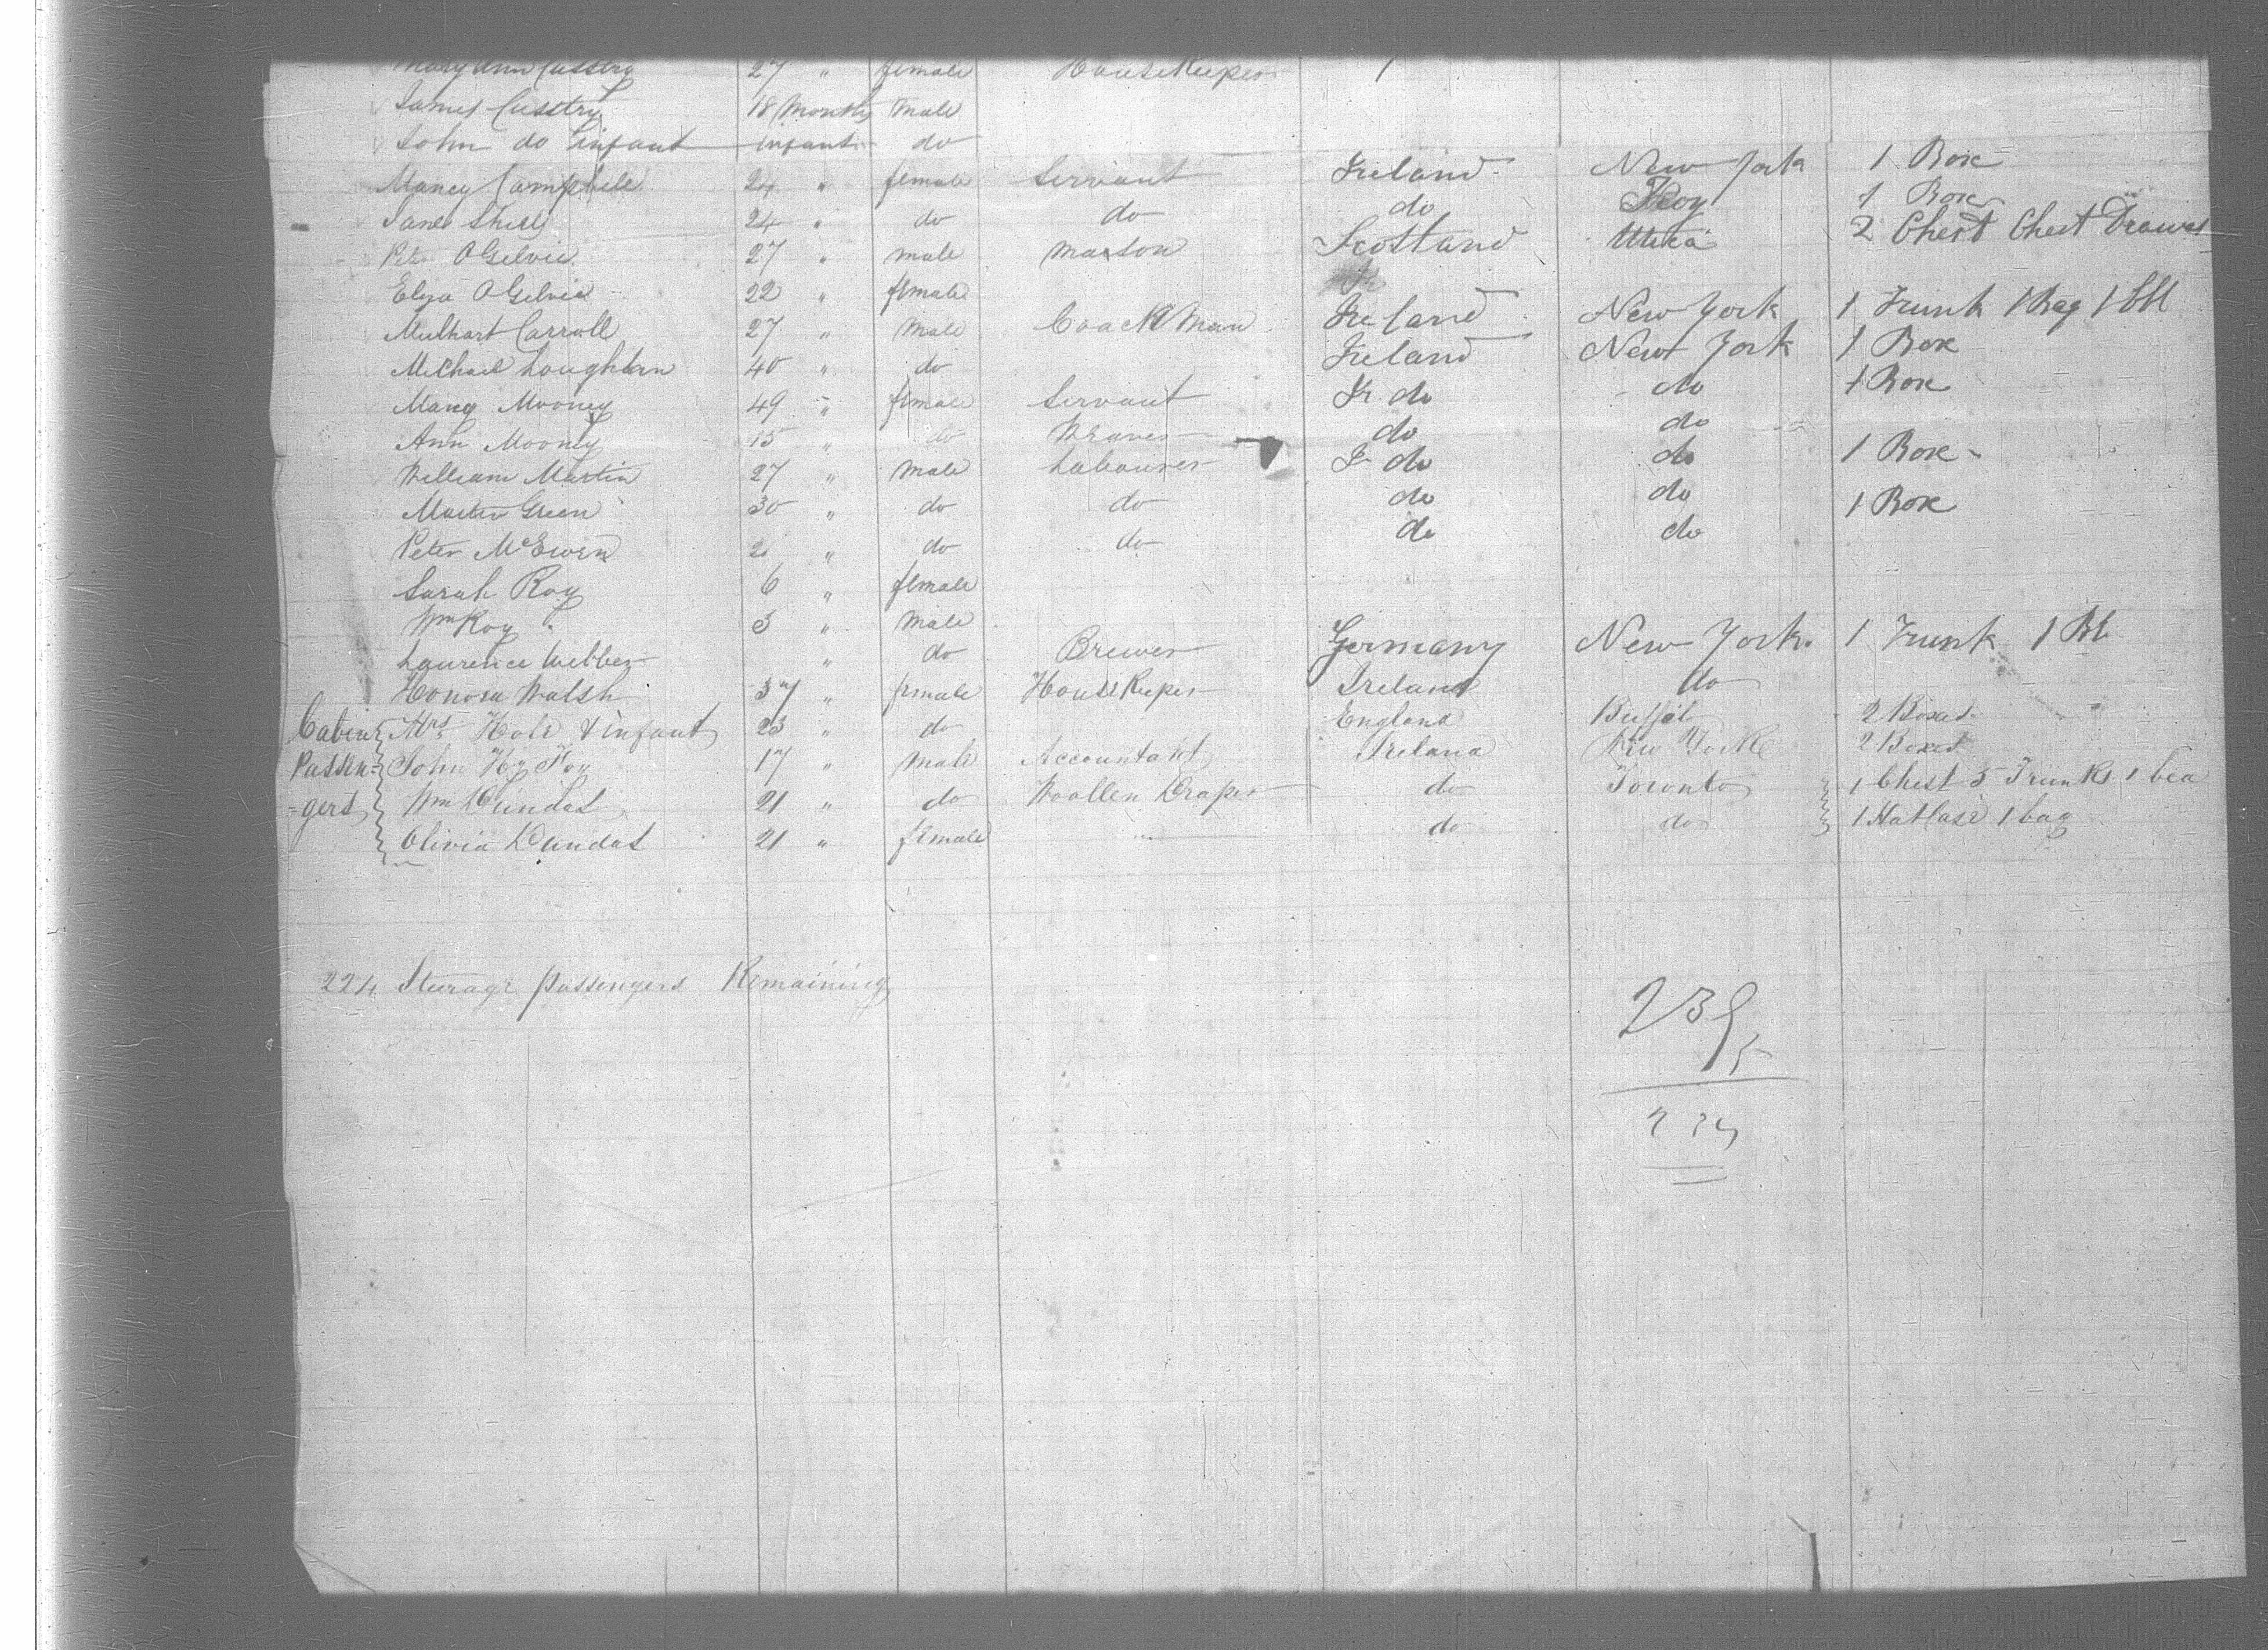 Mary Ann Cusstry 27 " female House Keeper
James Cusstry 18 Months Male
John do infant infant do
Nancy Campbell 24 " female Servant Ireland New York 1 Box
Jane 24 " do do do Troy 1 Box
Peter OGilvie 27 " male Mason Scotland Utica 2 Chest Chest Drawes
Eliza OGilvie 22 " female
Carroll 27 " Male Coach Man Ireland New York 1 Trunk 1 Bag 1 bbl
Michael Loughlan 40 " do Ireland New York 1 Box
Mary Mooney 49 " female Servant Ir do do 1 Box
Ann Mooney 15 " do Weaver do do
William Martin 27 " Male Labourer Ir do do 1 Box
Martin Green 30 " do do do do 1 Box
Peter McEwen " do do do do
Sarah Roy 6 " female
Wm Roy 3 " Male
Laurence Webber " do Brewer Germany New York. 1 Trunk 1 Bl
Honora Walsh 37 " female House Keeper Ireland do
Cabin Mrs Hole & infant 23 " do England Buffalo 2 Boxes
Passen- John Hy Foy 17 " Male Accountant Ireland New Yorke 2 Boxes
-gers Wm Dundas 21 " do Woollen Draper do Toronto 1 Chest 5 Trunks 1
Olivia Dundas 21 " female do do 1 Hatcase 1 bag
224 Steerage passengers Remaining
239
5
234